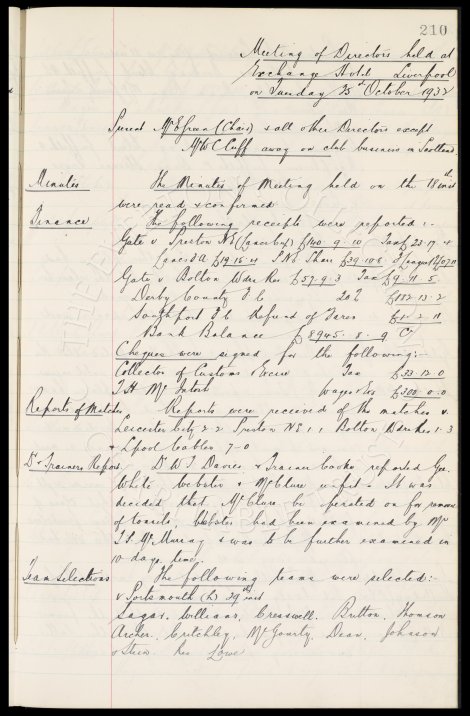 210
Meeting of Directors held at
Exchange Hotel Liverpool
on Tuesday 25th October 1932
Present Mr E Green (Chair) & all other Directors except
Mr W C Cuff away on club business in Scotland.
Minutes The Minutes of Meeting held on the 18th inst
were read & confirmed
Finance The following receipts were reported :-
Gate v Preston N E (Lancs Cup) £140 9 10 Tax £23 17 4
Lancs F A £19 16 11 P N E Share
Gate v Bolton Wdrs Res £57. 9. 3 Tax £9. 11. 5
Derby County F C £182 13 2
Southport F C Refund of Fares
Bank Balance £8945. 8. 9 Cr
Cheques were signed for the following:-
Collector of Customs & Excise Tax £33 12 0
T. H. McIntosh Wages & Exs £300 0 0
Reports of Matches Reports were received of the matches v
Leicester City 2 2 Preston N E 1 1 Bolton Wdrs Res 1-3
& Lpool Cables 7-0
Dr & Trainers Report. Dr W J Davies & Trainer Cooke reported Geo.
White Webster & McClure unfit & It was
decided that McClure be operated on for removal
of tonsils, Webster had been examined by Mr
T. P. McMurray & was to be further examined in
10 days time.
Team Selections The following teams were selected:-
v Portsmouth (h) 29th inst
Sagar, Williams, Cresswell, Britton, Thomson
Archer, Critchley, McGourty, Dean, Johnson
& Stein. Res Lowe